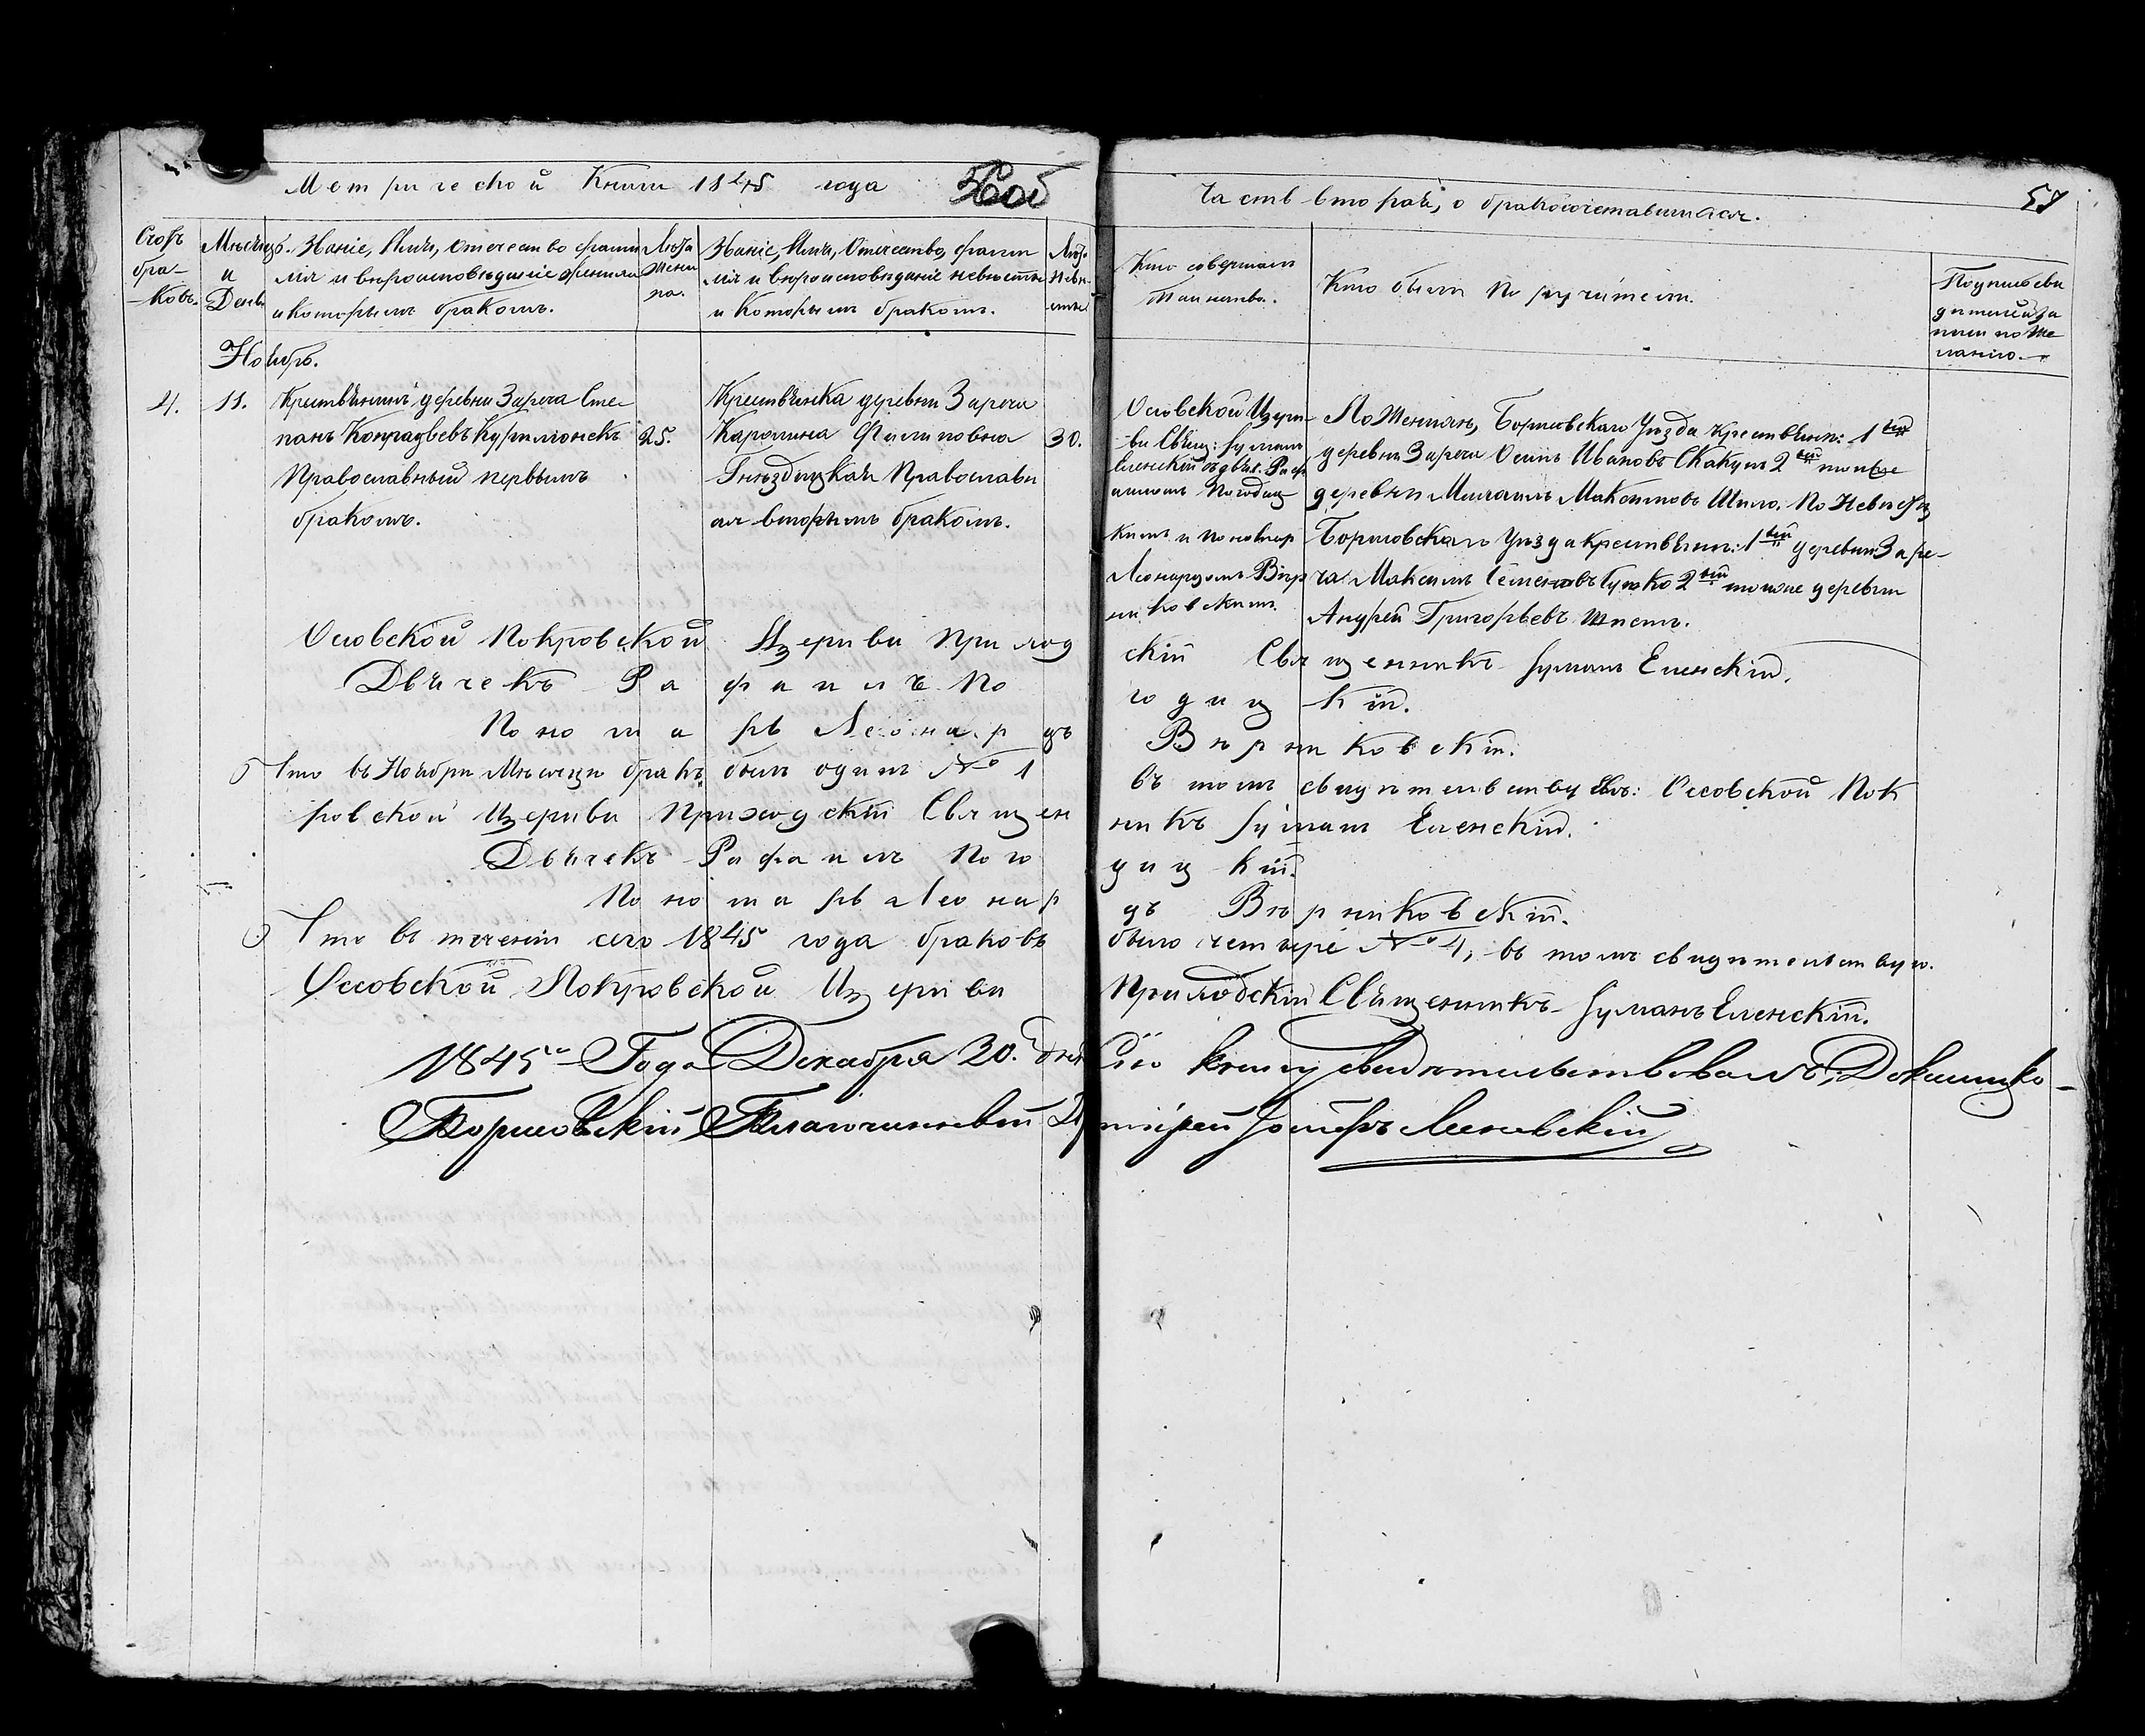 Метрической Книги 1845 года
Часть вторая, о бракосочетавшихся.
57
Счотъ бра-ковъ.
Мѣсяцъ и День
Званіе, Имя, Отечество фамилія и вѣроисповѣданіе жениха и которымъ бракомъ.
Лѣта жениха.
Званіе, Имя, Отечество, фамилія и вѣроисповѣданіе невѣсты и которымъ бракомъ.
Лѣта невѣсты
Кто совершалъ Таинство.
Кто были поручители.
Подпись свидѣтелей записи по желанію.
Ноябрь.
4.
11.
Крестьянинъ деревни Зареча Сте-
панъ Кондратьевъ
Православный первымъ
бракомъ.
25.
Крестьянка деревни Заречи
Каролина Филиповна
Гнѣздицкая Православн
ая вторымъ бракомъ.
30.
Оссовской Церк-
ви Свящ: Іуліанъ
Еленскій съ дьяч. Раф
аиломъ Погодиц-
кимъ и пономар
Леонардомъ Вѣр
никовскимъ.
По Женихѣ, Борисовскаго Уѣзда крестьян: 1ый
деревни Заречи Осипъ Ивановъ Скакунъ 2ый тойже
деревни Михаилъ Максимовъ Шило. По Невѣстѣ
Борисовскаго Уѣзда крестьянин: 1ый деревни Заре-
ча Максимъ Семеновъ 2ый тойже деревни
Андрей Григорьевъ
Оссовской Покровской Церкви Приход
скій Священникъ Іуліанъ Еленскій.
Дьячекъ Рафаилъ По
годицкій.
Пономарь Леонардъ
Вѣрниковскій.
Что въ Ноябрѣ Мѣсяцѣ бракъ былъ одинъ № 1
въ томъ свидѣтельствуемъ: Оссовской Пок
ровской Церкви Приходскій Священ
никъ Іуліанъ Еленскій.
Дьячекъ Рафаилъ Пого
дицкій.
Пономарь Леонар
дъ Вѣрниковскій.
Что въ теченіи сего 1845 года браковъ
было четыре № 4, въ томъ свидѣтельствую.
Оссовской Покровской Церкви
Приходскій Священникъ Іуліанъ Еленскій.
1845го Года Декабря 20. дня
Сію книгу свидѣтельствовалъ, Докшицко-
Борисовскій Благочинный
Іерей Іосифъ